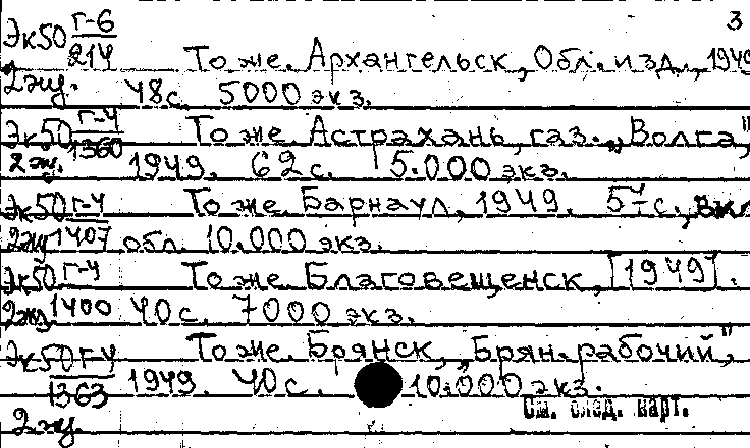 3
Эк50 Г-6/214 То же. Архангельск, Обл. изд., 1949
2 экз. 48 с. 5000 экз.
Эк50 Г-4/1360 То же. Астрахань, газ. „Волга",
2 экз. 1949. 62 с. 5.000 экз.
Эк50 Г-4 То же. Барнаул, 1949. 57 с., вкл
2 экз 1407 обл. 10.000 экз.
Эк50 Г-4 То же. Благовещенск, [1949].
2 экз. 1400 40 с. 7000 экз.
Эк50 Г-4 То же. Брянск, „Брян. рабочий",
1363 1949. 40 с. 10.000 экз.
См. след. карт.
2 экз.